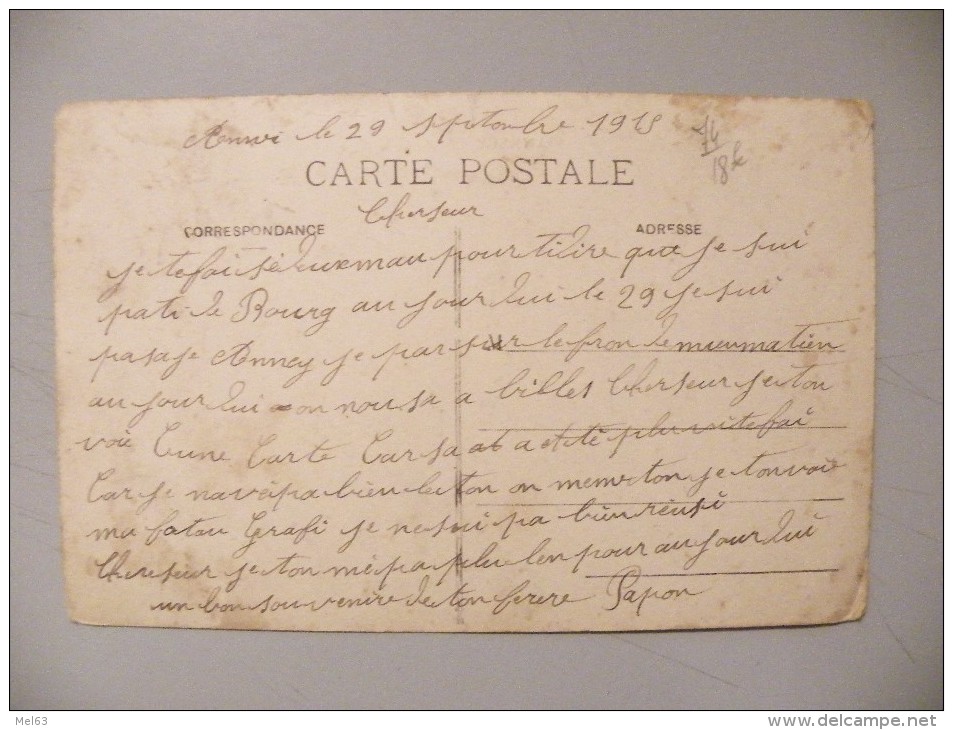 le 29 septembre 1915
74
18k
CARTE POSTALE
Cherseur
CORRESPONDANCE ADRESSE
je te fai sé deux mau pour ti dire que je sui
pati de Bourg au jour dui le 29 je sui
pasaje je par sur le fron de
au jour dui on nou sa a billes Cherseur je ton
voie Cune Carte Car sa at a etitè plu vite fai
Car je navè pa bien du ton on meme ton je ton voie
ma fotau Grafi je ne sui pa bien réusi
Chereseur je ton mè pa plu len pour au jour dui
un bon souvenire de ton ferere Papon
Mel63
www.delcampe.net